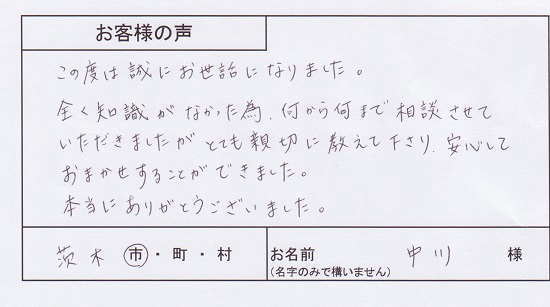 お客様の声
この度は誠にお世話になりました。
全く知識がなかった為、何から何まで相談させて
いただきましたがとても親切に教えて下さり、安心して
おまかせすることができました。
本当にありがとうございました。
茨木 市・町・村 お名前 中川 様
(名字のみで構いません)